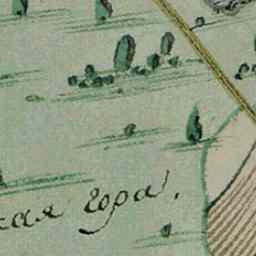 кая гора.